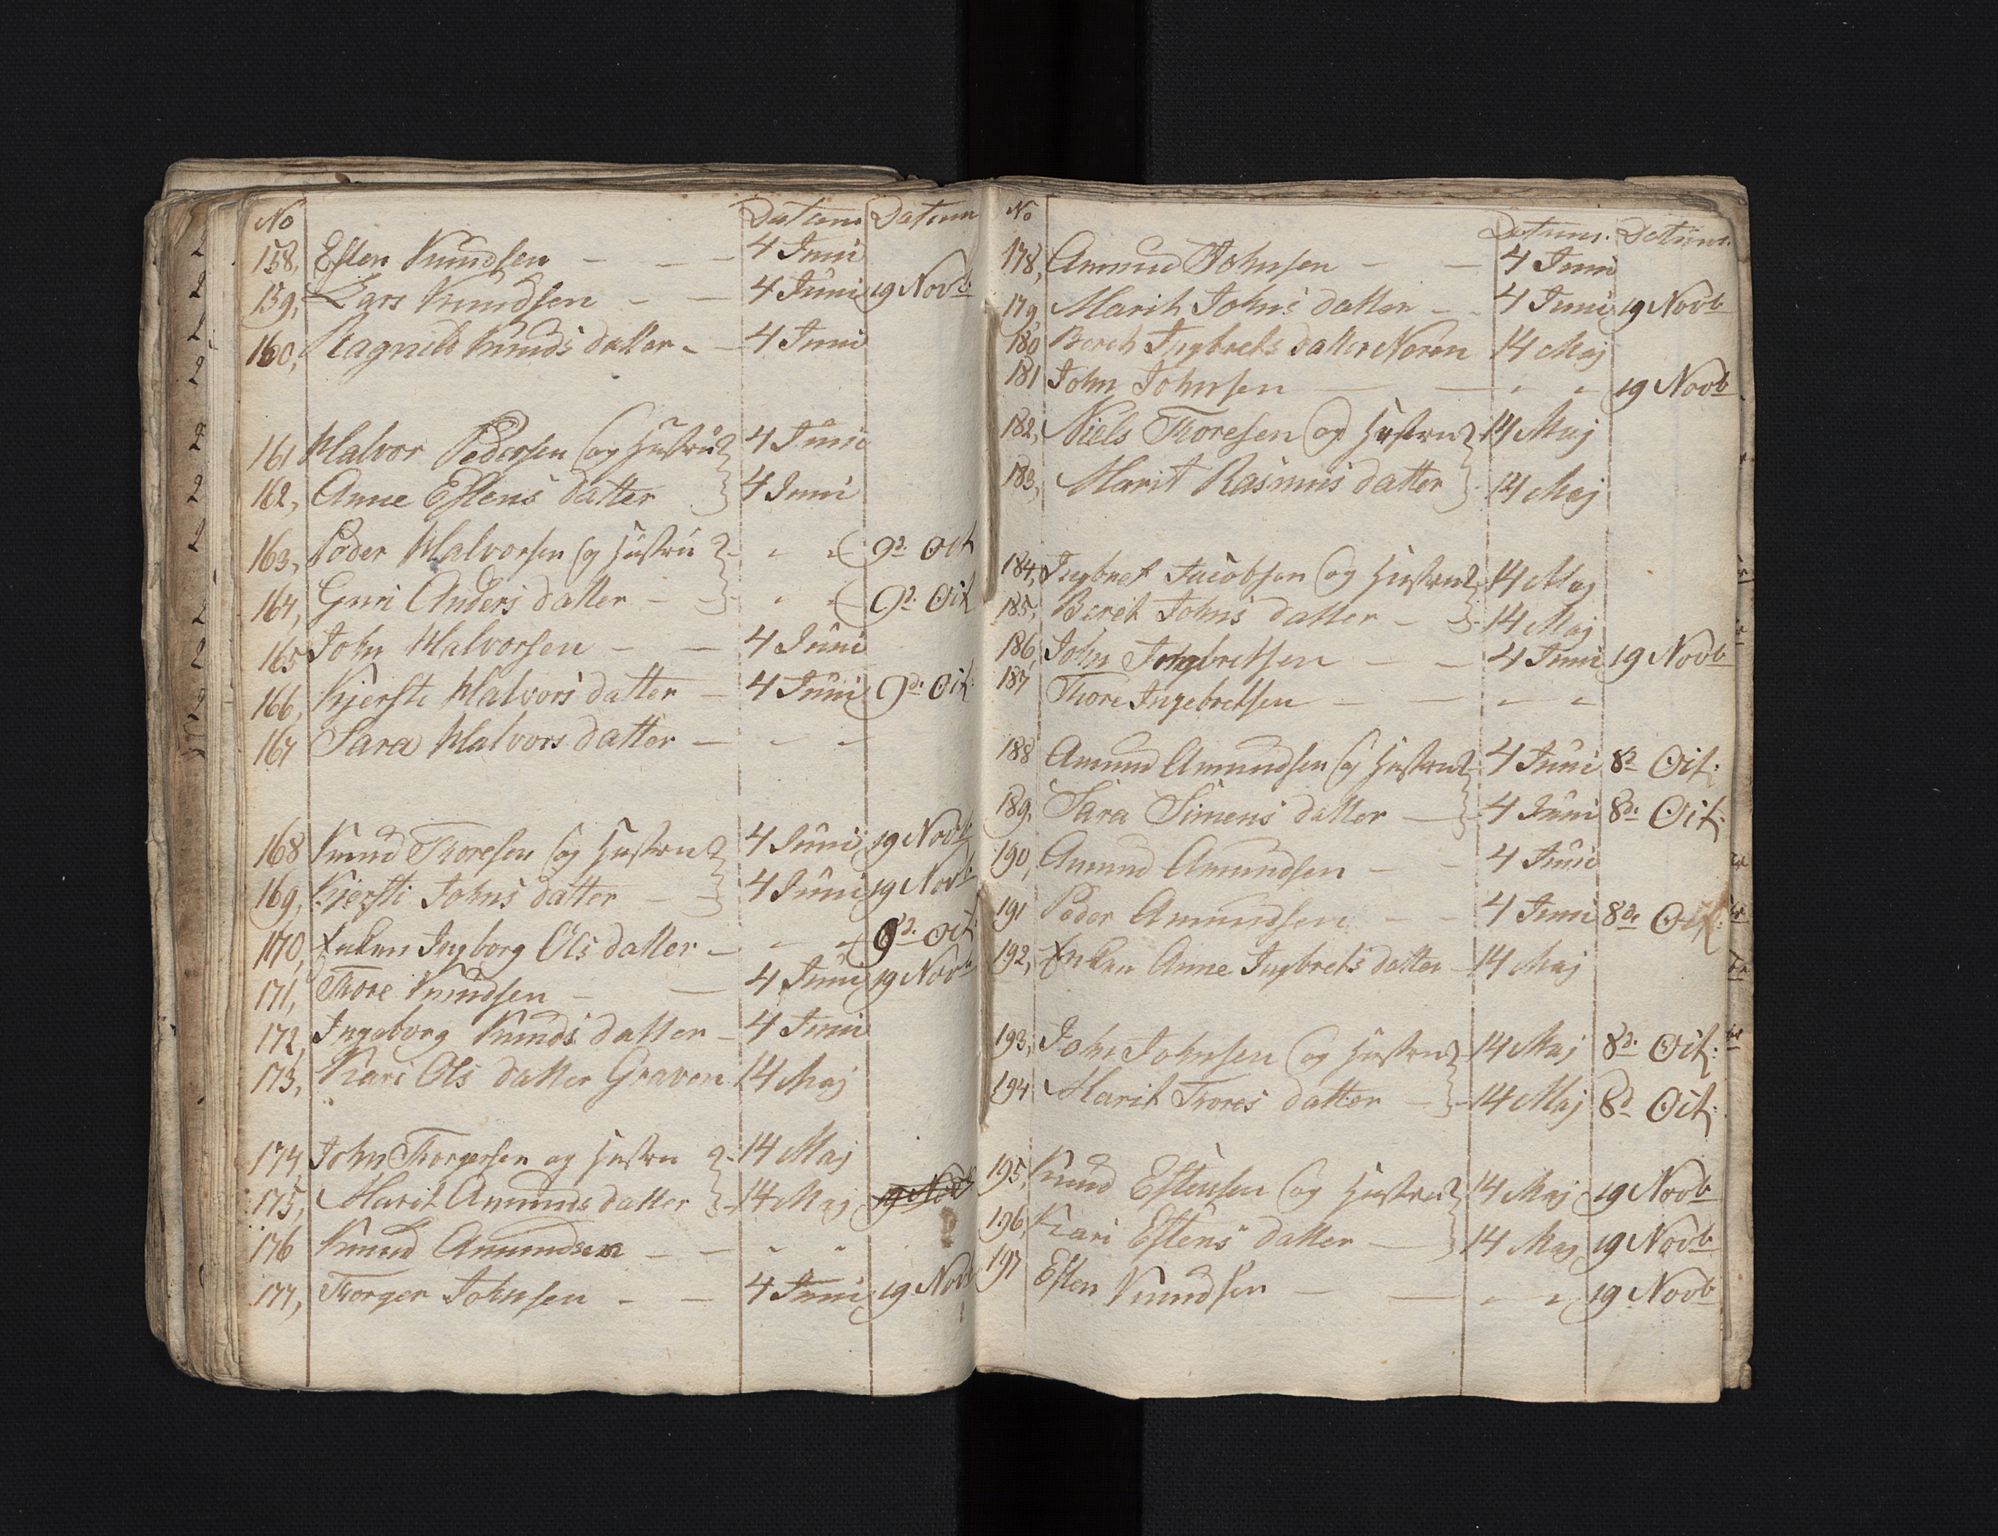 No Datum Datum
158, Esten Knudsen - - - 4 Juni
159, Lars Knudsen - - 4 Juni 19 Novb:
160, Ragnild Knuds datter - - 4 Juni
161 Halvor Pedersen og Hustru } 4 Juni
162, Anne Estens datter } 4 Juni
163, Peder Halvorsen og Hustru } - " " 9d: Oct
164, Guri Anders datter - - } - " " 9d: Oct
165 John Halvorsen - - 4 Juni
166, Kjersti Halvors datter - 4 Juni 9d: Oct:
167 Sara Halvors datter - - -
168 Knud Thoresen og Hustru } 4 Juni 19 Novb:
169, Kjersti Johns datter - } 4 Juni 19 Novb:
170, Enken Ingborg Ols datter - - - 9d: Oct:
171, Thore Knudsen - - 4 Juni 19 Novb
172, Ingeborg Knuds datter - 4 Juni
173, Kari Ols datter Graven 14 Maj
174 John Thorgersen og Hustru } - 14 Maj
175, Marit Amunds datter } - 14 Maj 19 Novb
176 Knud Amundsen - - " "
177, Thorger Johnsen - - 4 Juni 19 Novb
No Datum. Datum.
178, Amund Johnsen - - 4 Juni
179, Marit Johns datter - - 4 Juni 19 Novb
180 Bereh Ingbrets datter Noren 14 Maj
181 John Johnsen - - " " 19 Novb
182, Niels Thoresen og Hustru } 14 Maj
183, Marit Rasmus datter } 14 Maj
184, Ingbret Jacobsen og Hustru } 14 Maj
185, Berit Johns datter - } 14 Maj
186, John Ingbretsen - - 4 Juni 19 Novb
187 Thore Ingebretsen - - " "
188 Amund Amundsen og Hustru } 4 Juni 8d Oct:
189, Sara Simens datter - } 4 Juni 8d: Oct:
190, Amund Amundsen - - 4 Juni
191 Peder Amundsen - - 4 Juni 8d: Oct:
192, Enken Anne Ingbrets datter - 14 Maj
193, John Johnsen og Hustru } 14 Maj 8d: Oct:
194 Marit Thores datter - } 14 Maj 8d Oct:
195, Knud Estensen og Hustru } 14 Maj 19 Novb
196, Kari Estens datter - } 14 Maj 19 Novb
197 Esten Knudsen - - " " 19 Novb